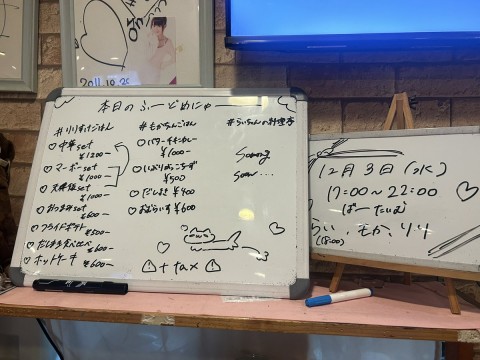 2011.10.20
本日のふーどめにゅー
#りりすけごはん
♡中華set
¥1200-
♡マーボーset
¥1000-
♡天津飯set
¥1000-
♡おつまみset
¥600-
♡フライドポテト
¥500-
♡だしまき食べ比べ
¥600-
♡ホットケーキ
¥600-
#もかちんごはん
♡バターチキンカレー
¥1000-
♡いぶりがっこちーず
¥500
♡だしまき ¥400
♡おむらいす ¥600
#らいちゃんの料理
Coming
soon...
⚠+tax⚠
12月3日(水)
17:00~22:00
ばーたいむ
らい、もか、りり
(18:00)